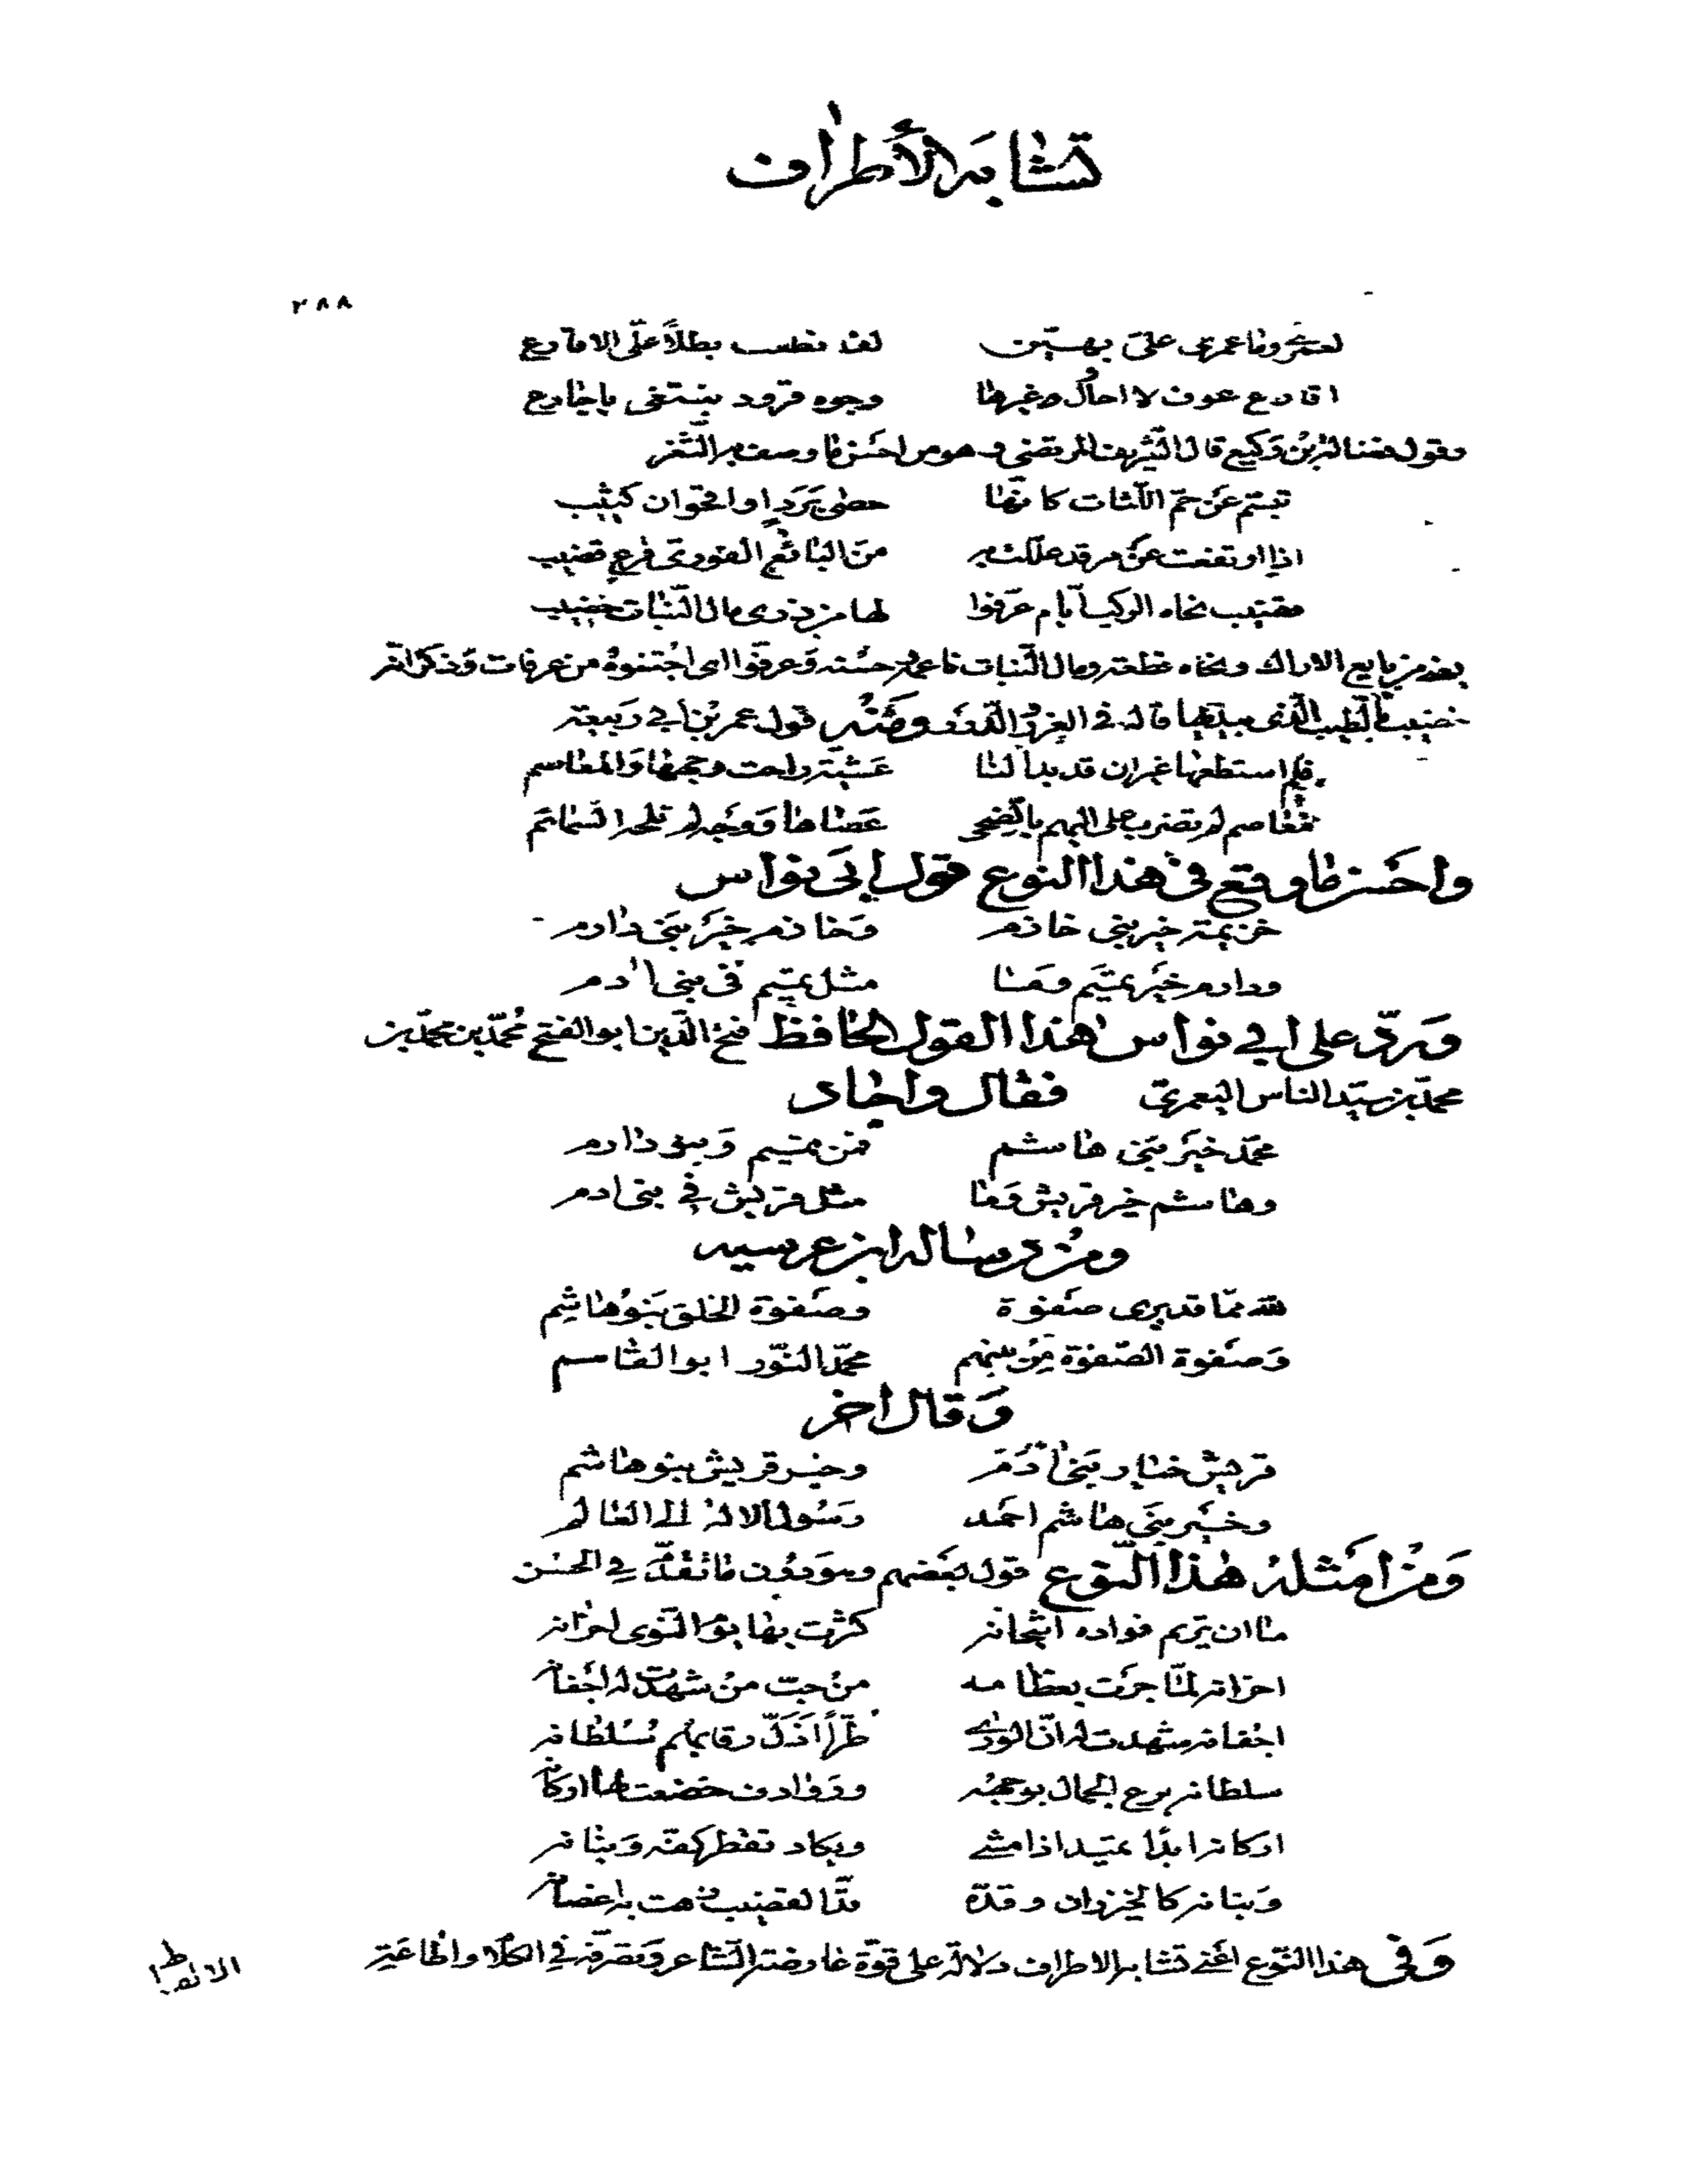 تشابه الأطراف
٢٨٨
لعمري وما عمري علي بهين لقد نطقت بطلاً على الاقارع
اقارع عوف لا احاول غيرها وجوه قرود يبتغي باخادع
وقول قال الشريف المرتضى وهو من احسن ما وصف به الثغر
تبسّم عن حمّ اللثات كانّها حصى برد او اقحوان كثيب
اذا ارتفعت عن مرقد عللت به من اليانع الغوري فرع قضيب
قضيب نجاه الركب ايّام عرّفوا لها من ذرى مال النبات خضيب
الاراك ونجاه قطعه ومال النبات وعرّفوا اى اجتنوه من عرفات وذكر انّه
خضيب الطيب الذي بيديها قاله في الغرر والدرر ومنه قول عمر بن ابي ربيعة
فلم استطعها غير ان قد بدا لنا عشيّة راحت وجهها والمعاصم
معاصم لم تضرب على البهم بالضحى عصاها ووجه لم تلحه السمائم
واحسن ما وقع في هذا النوع قول ابي نواس
خزيمة خير بني خازم وخازم خير بني دارم
ودارم خير تميم وما مثل تميم في بني آدم
وردّ على ابي نواس هذا القول الحافظ فتح الدّين ابو الفتح محمّد بن محمّد بن
محمّد بن سيّد الناس اليعمريّ فقال واجاد
محمّد خير بني هاشم فمن تميم وبنو دارم
وهاشم خير قريش وما مثل قريش في بني ادم
ومن رسالة ابن عرسيه
لله ممّا قد برى صفوة وصفوة الخلق بنو هاشم
وصفوة الصّفوة من بينهم محمّد النّور ابو القاسم
وقال اخر
قريش خيار بني آدم وخير قريش بنو هاشم
وخير بني هاشم احمد رسول الاله الى العالم
ومن امثلة هذا النّوع قول بعضهم وهو دون ما تقدّم في الحسن
ما ان يريم فواده اشجانه كثرت بها يوم النوى احزانه
احزانه لمّا جرت بعظامه من حبّ من شهدت له اجفانه
اجفانه شهدت له انّ الورى طرّاً اذلّ رقابهم سلطانه
سلطانه برع الجمال بوجهه وروادف خضعت لها اركانه
اركانه ابداً تميد اذا مشى ويكاد تقطر كفّه وبنانه
وبنانه كالخيزران وقدّه قدّ القضيب زهت به اغصانه
وفي هذا النّوع اعني تشابه الاطراف دلالة على قوّة عارضة الشاعر وتصرّفه في الكلام واطاعة
الالفاظ